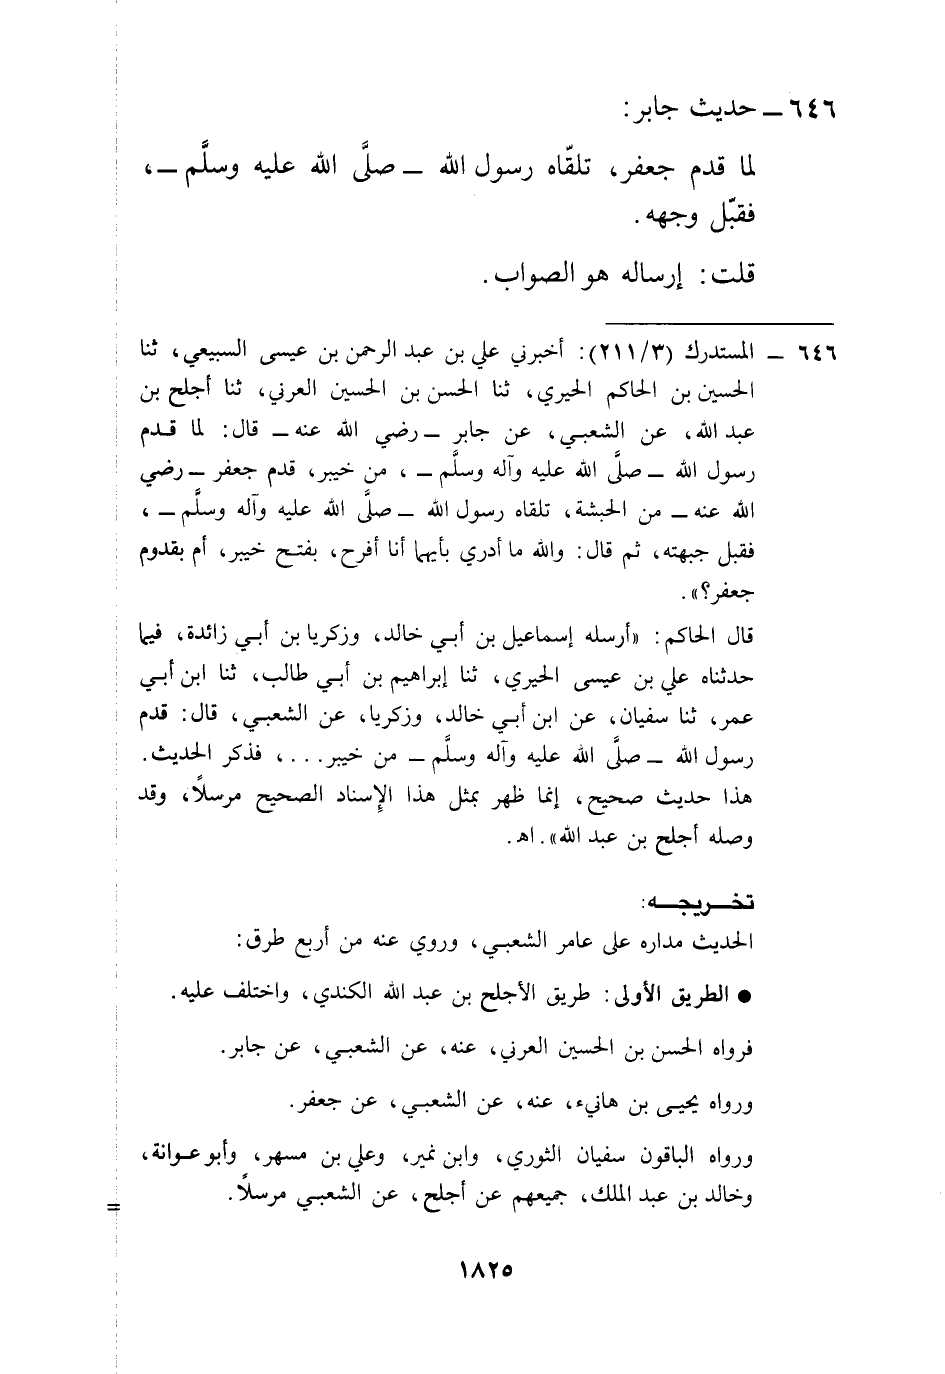 ٦٤٦ ــ حديث جابر:
لما قدم جعفر، تلقّاه رسول الله ــ صلَّى الله عليه وسلَّم ــ،
فقبّل وجهه.
قلت: إرساله هو الصواب.
٦٤٦ ــ المستدرك (٢١١/٣): أخبرني علي بن عبد الرحمن بن عيسى السبيعي، ثنا
الحسين بن الحاكم الحيري، ثنا الحسن بن الحسين العرني، ثنا أجلح بن
عبد الله، عن الشعبي، عن جابر ــ رضي الله عنه ــ قال: لما قدم
رسول الله ــ صلَّى الله عليه وآله وسلَّم ــ، من خيبر، قدم جعفر ــ رضي
الله عنه ــ من الحبشة، تلقاه رسول الله ــ صلَّى الله عليه وآله وسلَّم ــ،
فقبل جبهته، ثم قال: والله ما أدري بأيهما أنا أفرح، بفتح خيبر، أم بقدوم
جعفر؟».
قال الحاكم: «أرسله إسماعيل بن أبي خالد، وزكريا بن أبي زائدة، فيما
حدثناه علي بن عيسى الحيري، ثنا إبراهيم بن أبي طالب، ثنا ابن أبي
عمر، ثنا سفيان، عن ابن أبي خالد، وزكريا، عن الشعبي، قال: قدم
رسول الله ــ صلَّى الله عليه وآله وسلَّم ــ من خيبر...، فذكر الحديث.
هذا حديث صحيح، إنما ظهر بمثل هذا الإسناد الصحيح مرسلاً، وقد
وصله أجلح بن عبد الله». اهـ.
تخــريجــه:
الحديث مداره على عامر الشعبي، وروي عنه من أربع طرق:
● الطريق الأولى: طريق الأجلح بن عبد الله الكندي، واختلف عليه.
فرواه الحسن بن الحسين العرني، عنه، عن الشعبي، عن جابر.
ورواه يحيى بن هانيء، عنه، عن الشعبي، عن جعفر.
ورواه الباقون سفيان الثوري، وابن نمير، وعلي بن مسهر، وأبو عوانة،
وخالد بن عبد الملك، جميعهم عن أجلح، عن الشعبي مرسلاً. =
١٨٢٥